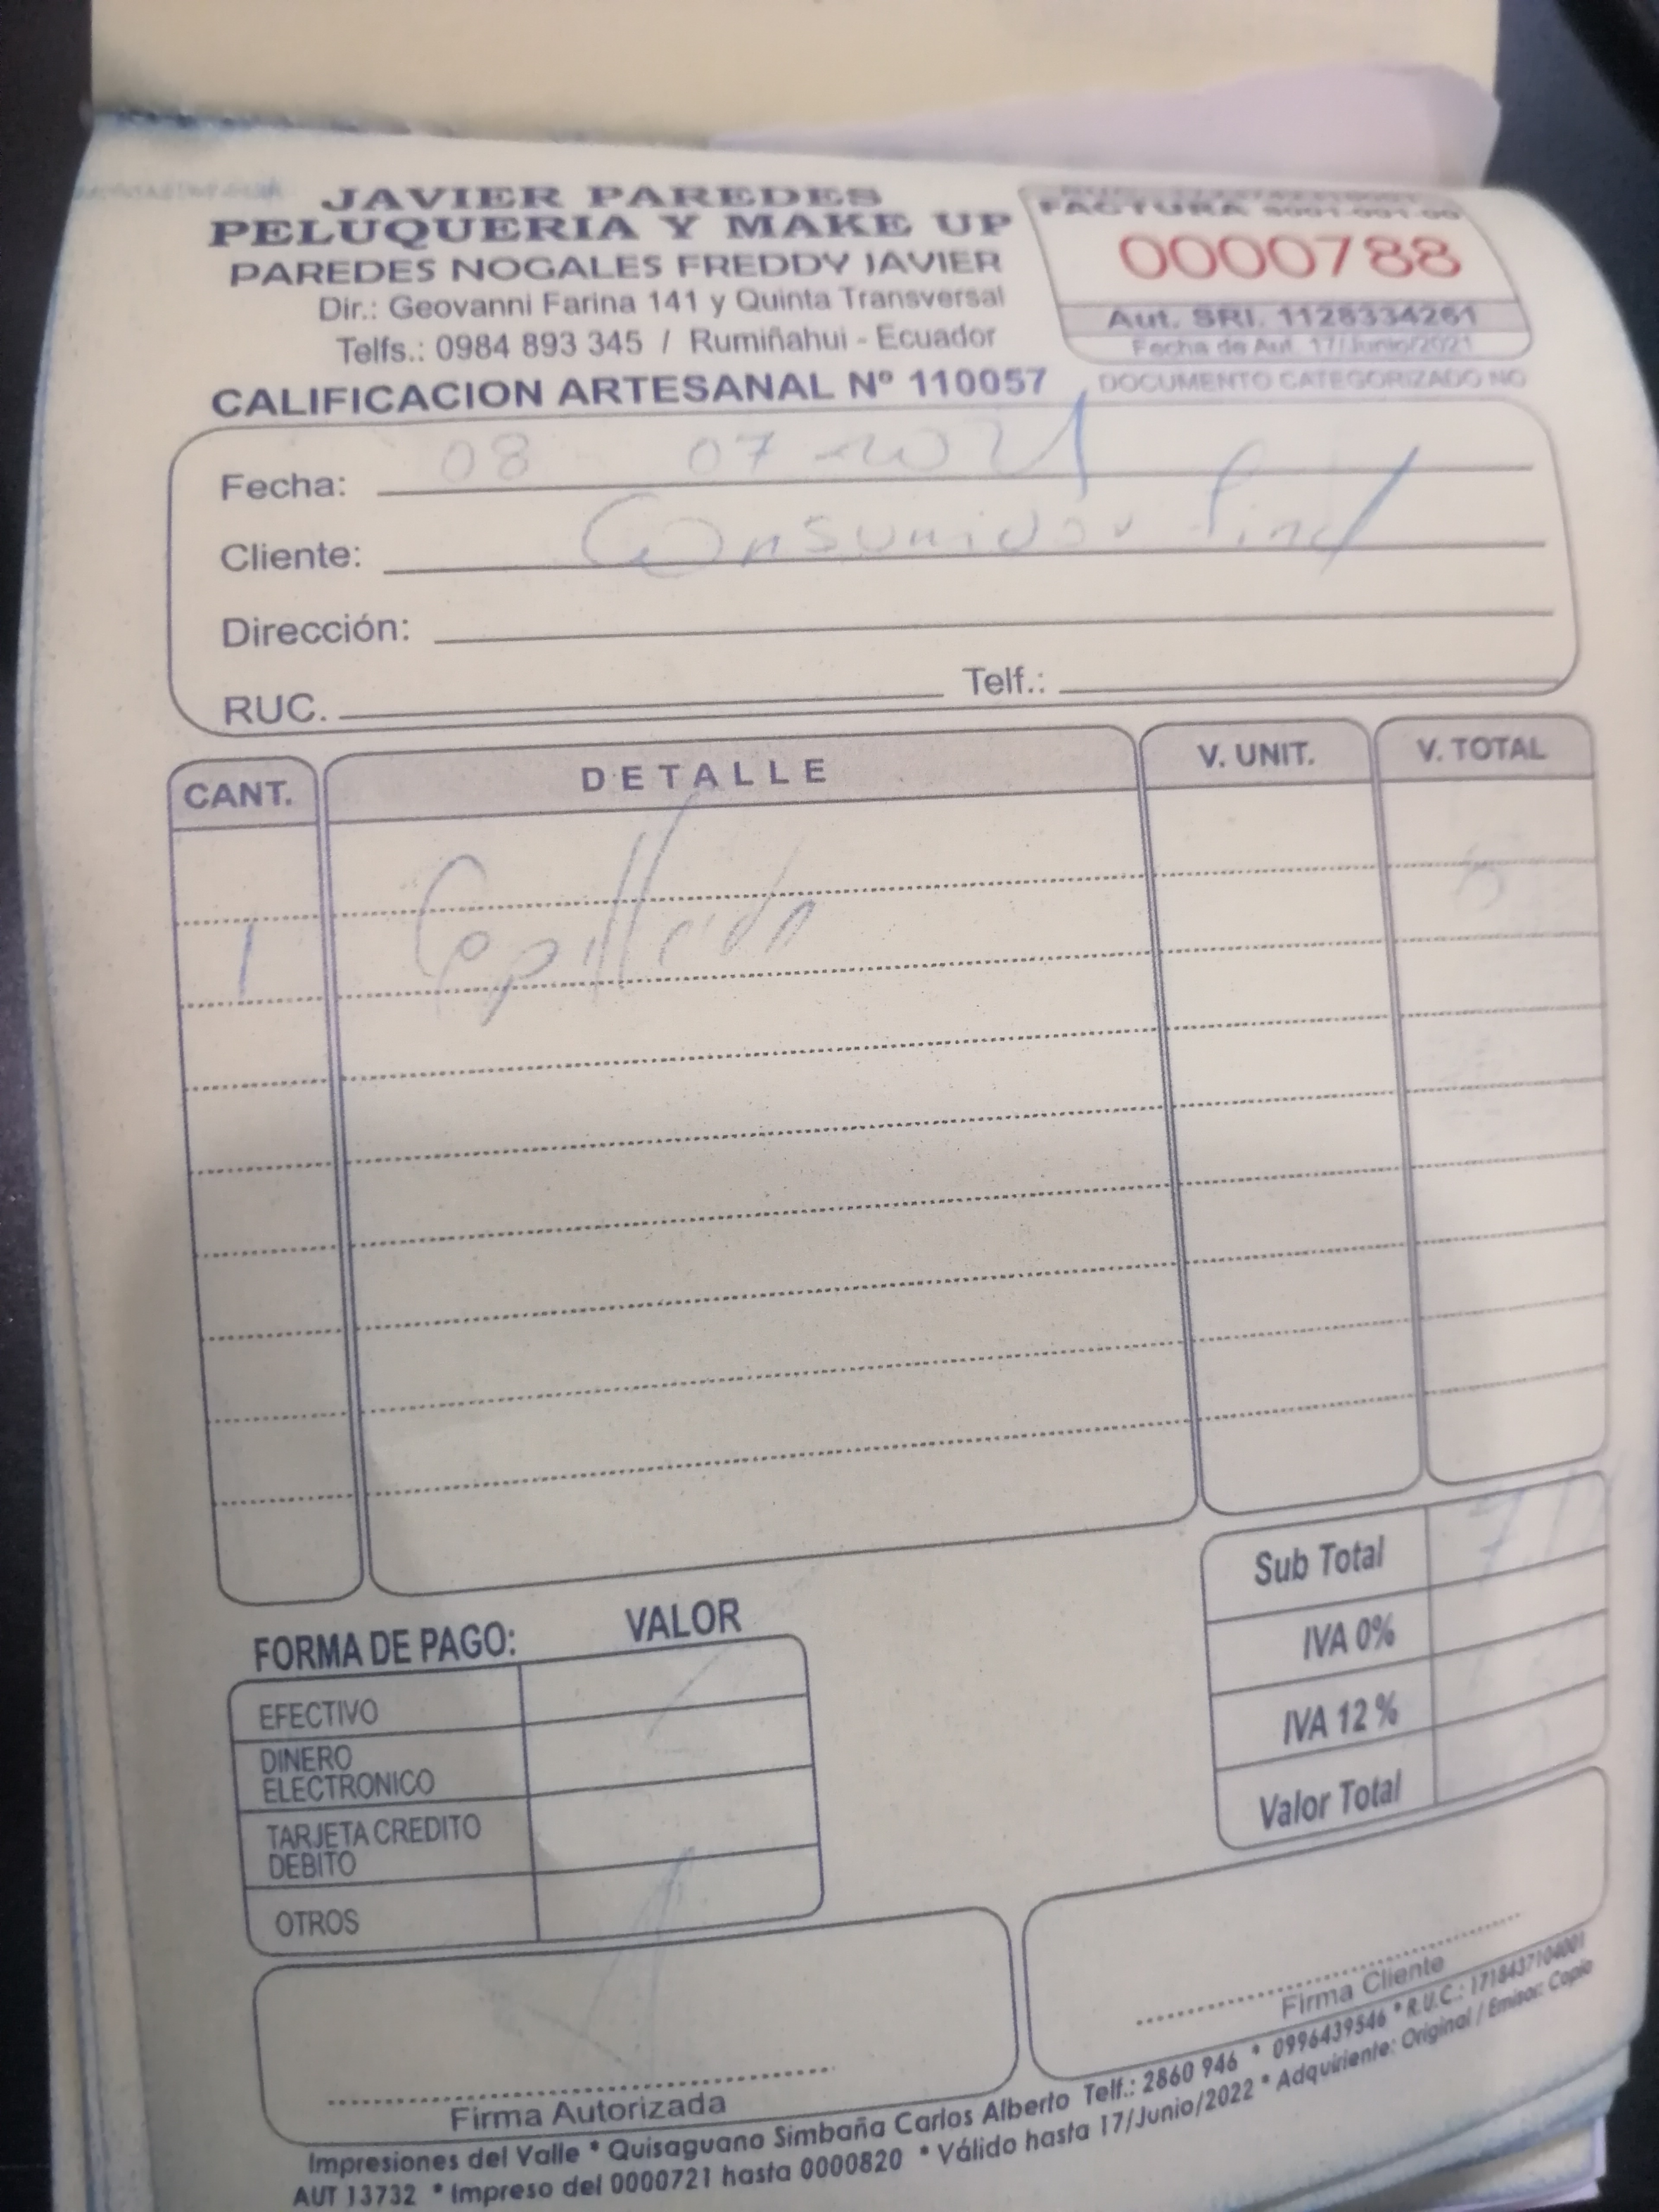 JAVIER PAREDES
PELUQUERIA Y MAKE UP
PAREDES NOGALES FREDDY JAVIER
Dir.: Geovanni Farina 141 y Quinta Transversal
Telfs.: 0984 893 345 / Rumiñahui - Ecuador
CALIFICACION ARTESANAL Nº 110057
FACTURA S001-001-00
0000788
Aut. SRI. 1128334261
Fecha de Aut. 17/Junio/2021
DOCUMENTO CATEGORIZADO NO
Fecha: 08 07-2021
Cliente: Consumidor final
Dirección:
RUC. Telf.:
CANT. DETALLE V. UNIT. V. TOTAL
1 Cepillado
Sub Total
IVA 0%
IVA 12 %
Valor Total
FORMA DE PAGO: VALOR
EFECTIVO
DINERO ELECTRONICO
TARJETA CREDITO DEBITO
OTROS
Firma Autorizada
Firma Cliente
Impresiones del Valle * Quisaguano Simbaña Carlos Alberto Telf.: 2860 946 * 0996439546 * R.U.C.: 1718437104001
AUT 13732 * Impreso del 0000721 hasta 0000820 * Válido hasta 17/Junio/2022 * Adquiriente: Original / Emisor: Copia